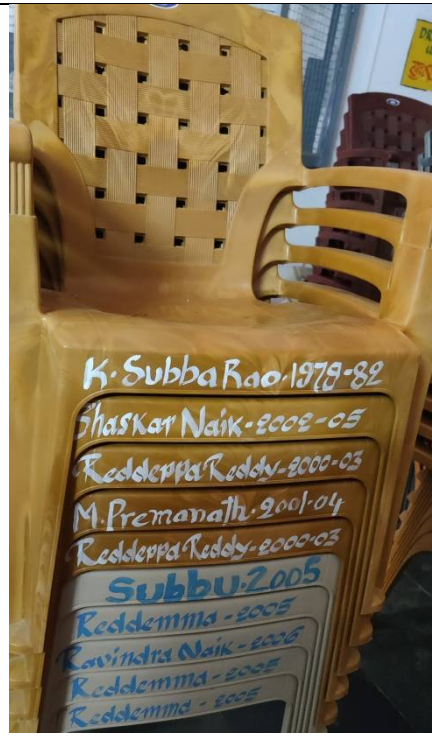 K. Subba Rao. 1979-82
Bhaskar Naik-2002-05
Reddeppa Reddy-2000-03
M. Premanath. 2001-04
Reddeppa Reddy-2000-03
Subbu. 2005
Reddemma-2005
Ravindra Naik-2006
Reddemma-2005
Reddemma-2005